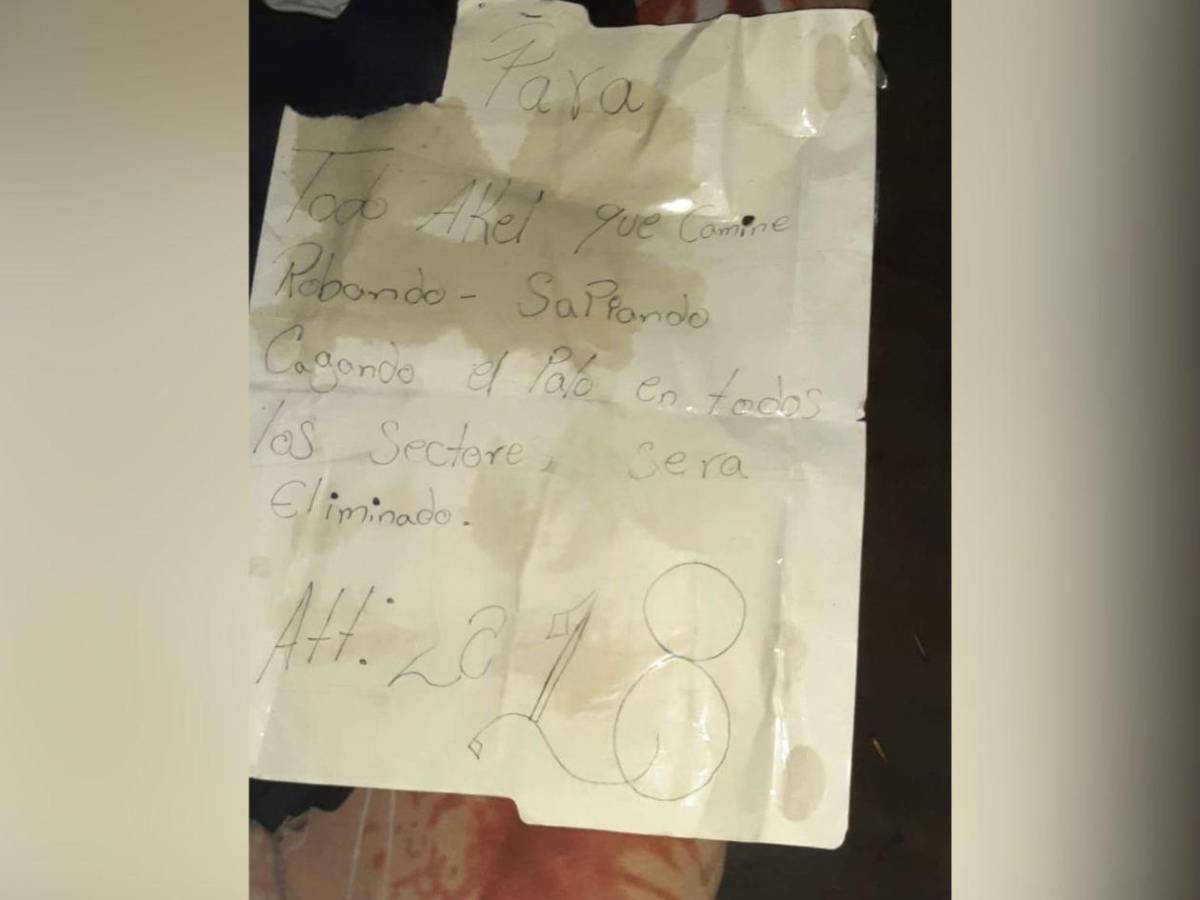 Para
Todo AKel que camine
Robando - SaPiando
Cagando el Palo en todos
los Sectore, sera
Eliminado.
Att: La 18